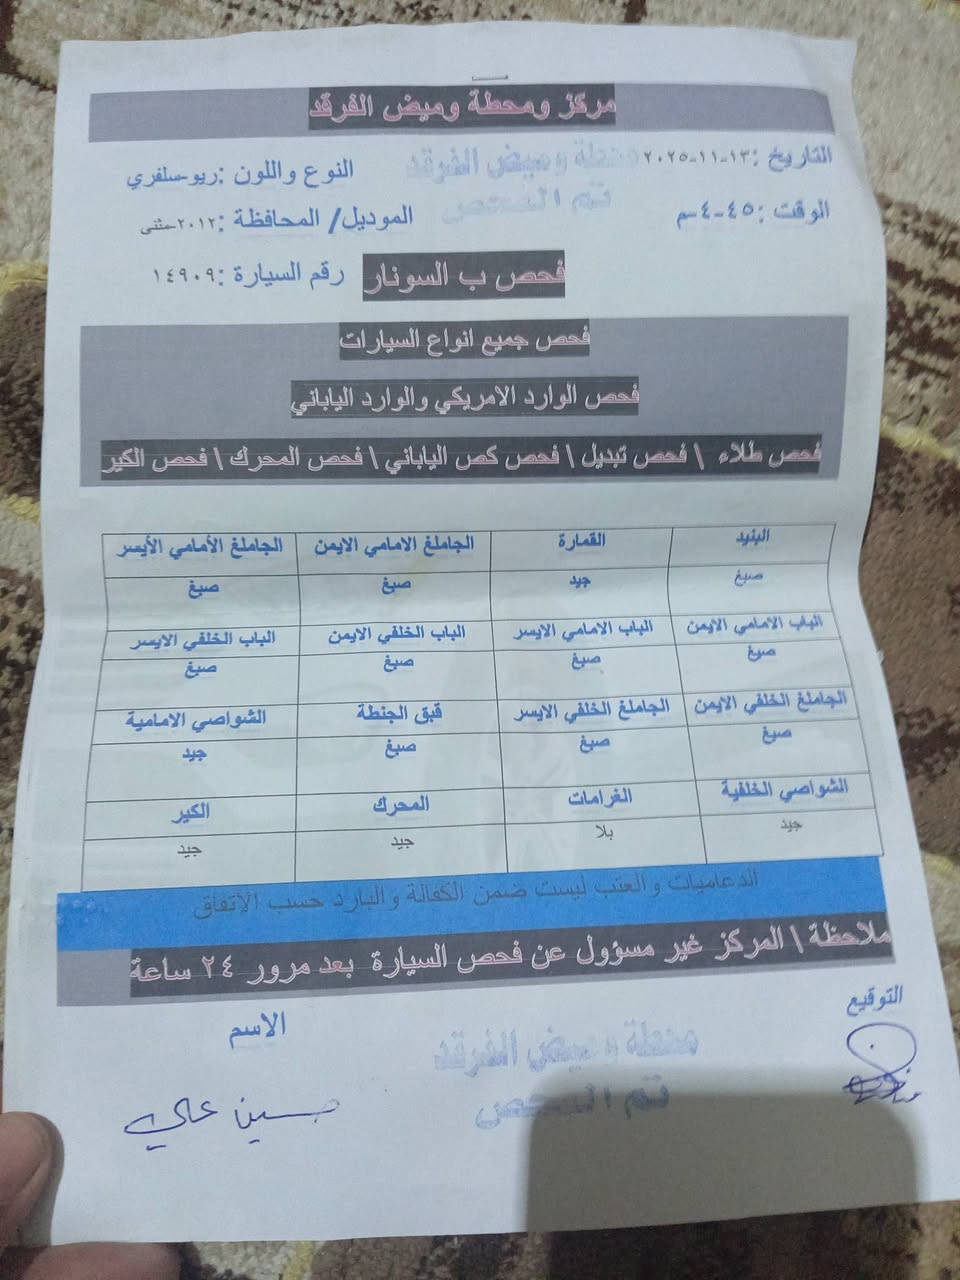 مركز ومحطة وميض الفرقد
التاريخ :١٣-١١-٢٠٢٥
محطة وميض الفرقد
النوع واللون :ريو-سلفري
تم الفحص
الوقت :٤٥-٤-م
الموديل/ المحافظة :٢٠١٢-مثنى
فحص ب السونار
رقم السيارة :١٤٩٠٩
فحص جميع انواع السيارات
فحص الوارد الامريكي والوارد الياباني
فحص طلاء \ فحص تبديل \ فحص كص الياباني \ فحص المحرك \ فحص الكير
البنيد القمارة الجاملغ الامامي الايمن الجاملغ الأمامي الأيسر
صبغ جيد صبغ صبغ
الباب الامامي الايمن الباب الامامي الايسر الباب الخلفي الايمن الباب الخلفي الايسر
صبغ صبغ صبغ صبغ
الجاملغ الخلفي الايمن الجاملغ الخلفي الايسر قبق الجنطة الشواصي الامامية
صبغ صبغ صبغ جيد
الشواصي الخلفية الغرامات المحرك الكير
جيد بلا جيد جيد
الدعاميات والعتب ليست ضمن الكفالة والبارد حسب الاتفاق
ملاحظة \ المركز غير مسؤول عن فحص السيارة بعد مرور ٢٤ ساعة
التوقيع
الاسم
محطة وميض الفرقد
تم الفحص
حسين علي